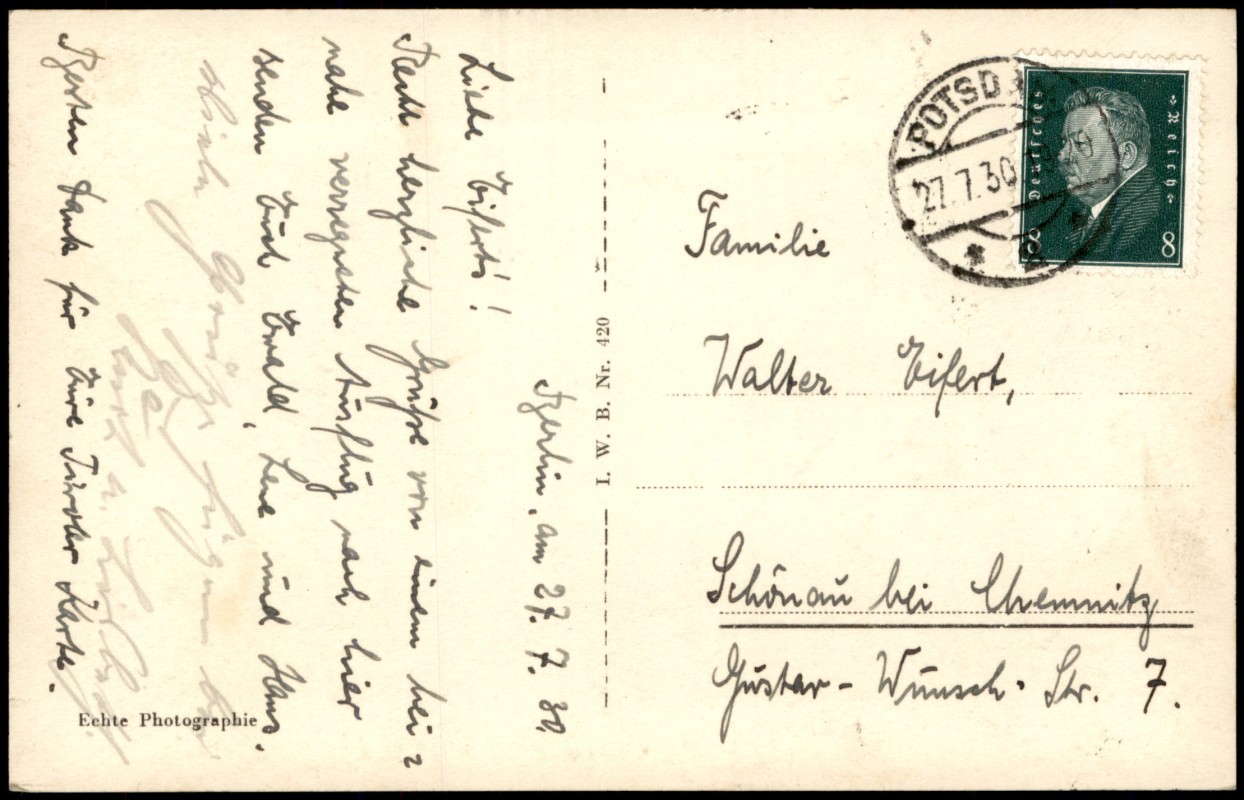 Berlin, am 27. 7. 30.
Liebe Eiferts!
Recht herzliche Grüße von einem bei=
nahe verregneten Ausflug nach hier
senden Euch Ewald, Lene und Hans.
Viele Grüße fügen bei
u.
Besten Dank für Eure Tiroler Karte.
Echte Photographie
I. W. B. Nr. 420
POTSD
27.7.30
Deutsches Reich
8 8
Familie
Walter Eifert,
Schönau bei Chemnitz
Gustav-Wunsch-Str. 7.